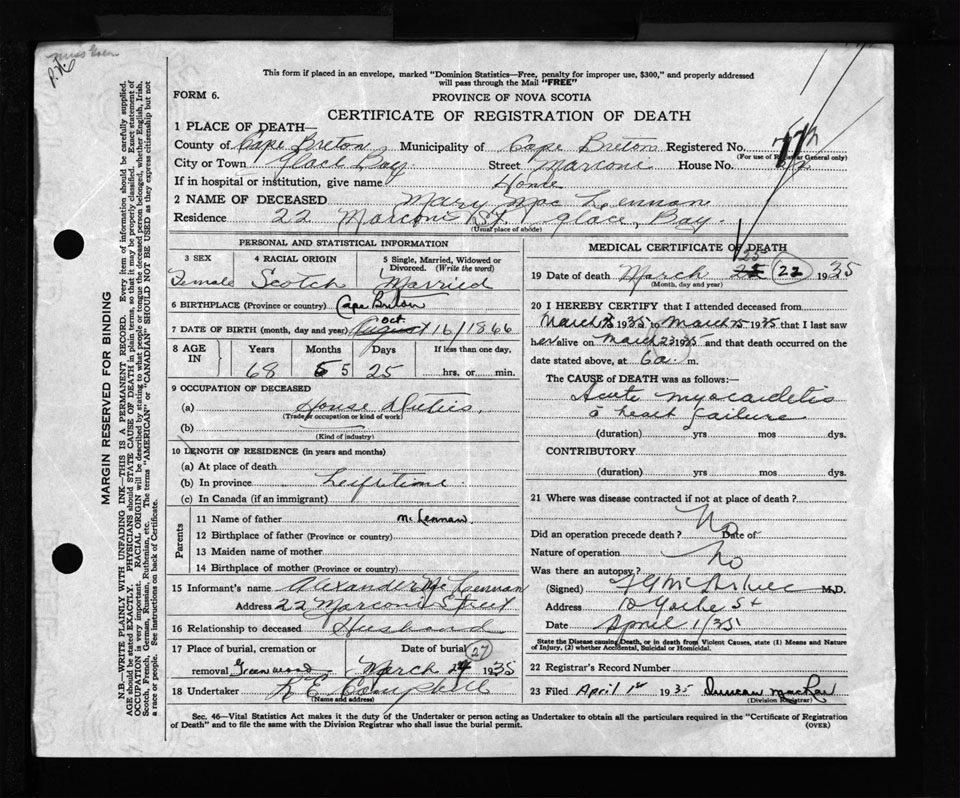 This form if placed in an envelope, marked "Dominion Statistics—Free, penalty for improper use, $300," and properly addressed
will pass through the Mail "FREE"
FORM 6.
PROVINCE OF NOVA SCOTIA
CERTIFICATE OF REGISTRATION OF DEATH
1 PLACE OF DEATH—
County of Cape Breton Municipality of Cape Breton Registered No.
(For use of Registrar General only)
City or Town Glace Bay Street Marconi House No. 22
If in hospital or institution, give name Home
2 NAME OF DECEASED Mary Mac Lennan
Residence 22 Marconi St. Glace Bay.
(Usual place of abode)
PERSONAL AND STATISTICAL INFORMATION
3 SEX
4 RACIAL ORIGIN
5 Single, Married, Widowed or
Divorced. (Write the word)
Female Scotch Married
6 BIRTHPLACE (Province or country) Cape Breton
7 DATE OF BIRTH (month, day and year) August Oct 16/1866
8 AGE IN
Years Months Days If less than one day,
68 5 5 25 hrs. or min.
9 OCCUPATION OF DECEASED
(a) House Duties.
(Trade, occupation or kind of work)
(b)
(Kind of industry)
10 LENGTH OF RESIDENCE (in years and months)
(a) At place of death
(b) In province Lifetime
(c) In Canada (if an immigrant)
Parents
11 Name of father McLennan.
12 Birthplace of father (Province or country)
13 Maiden name of mother
14 Birthplace of mother (Province or country)
15 Informant's name Alexander Mc Lennan
Address 22 Marconi Street
16 Relationship to deceased Husband
17 Place of burial, cremation or
removal Greenwood
Date of burial 27
March 1935
18 Undertaker R E Campbell
(Name and address)
MEDICAL CERTIFICATE OF DEATH
25
19 Date of death March 1935
(Month, day and year)
20 I HEREBY CERTIFY that I attended deceased from
March 1935 to March 25 1935 that I last saw
her alive on March 23 1935 and that death occurred on the
date stated above, at 6 a. m.
The CAUSE of DEATH was as follows:—
Acute myocarditis
& heart failure
(duration) yrs mos dys.
CONTRIBUTORY
(duration) yrs mos dys.
21 Where was disease contracted if not at place of death?
Did an operation precede death? No Date of
Nature of operation
Was there an autopsy? No
(Signed) M.D.
Address Yorke St
Date April 1/35
State the Disease causing Death, or in death from Violent Causes, state (1) Means and Nature
of Injury, (2) whether Accidental, Suicidal or Homicidal.
22 Registrar's Record Number
23 Filed April 1st 1935 Duncan MacRae
(Division Registrar)
Sec. 46—Vital Statistics Act makes it the duty of the Undertaker or person acting as Undertaker to obtain all the particulars required in the "Certificate of Registration
of Death" and to file the same with the Division Registrar who shall issue the burial permit.
(OVER)
MARGIN RESERVED FOR BINDING
N.B.—WRITE PLAINLY WITH UNFADING INK—THIS IS A PERMANENT RECORD. Every item of information should be carefully supplied.
AGE should be stated EXACTLY. PHYSICIANS should STATE CAUSE OF DEATH in plain terms, so that it may be properly classified. Exact statement of
OCCUPATION is very important. RACIAL ORIGIN will be described by stating to what people or tongue the deceased person belonged, whether English, Irish,
Scotch, French, German, Russian, Ruthenian, etc. The terms "AMERICAN" or "CANADIAN" SHOULD NOT BE USED as they express citizenship but not
a race or people. See instructions on back of Certificate.